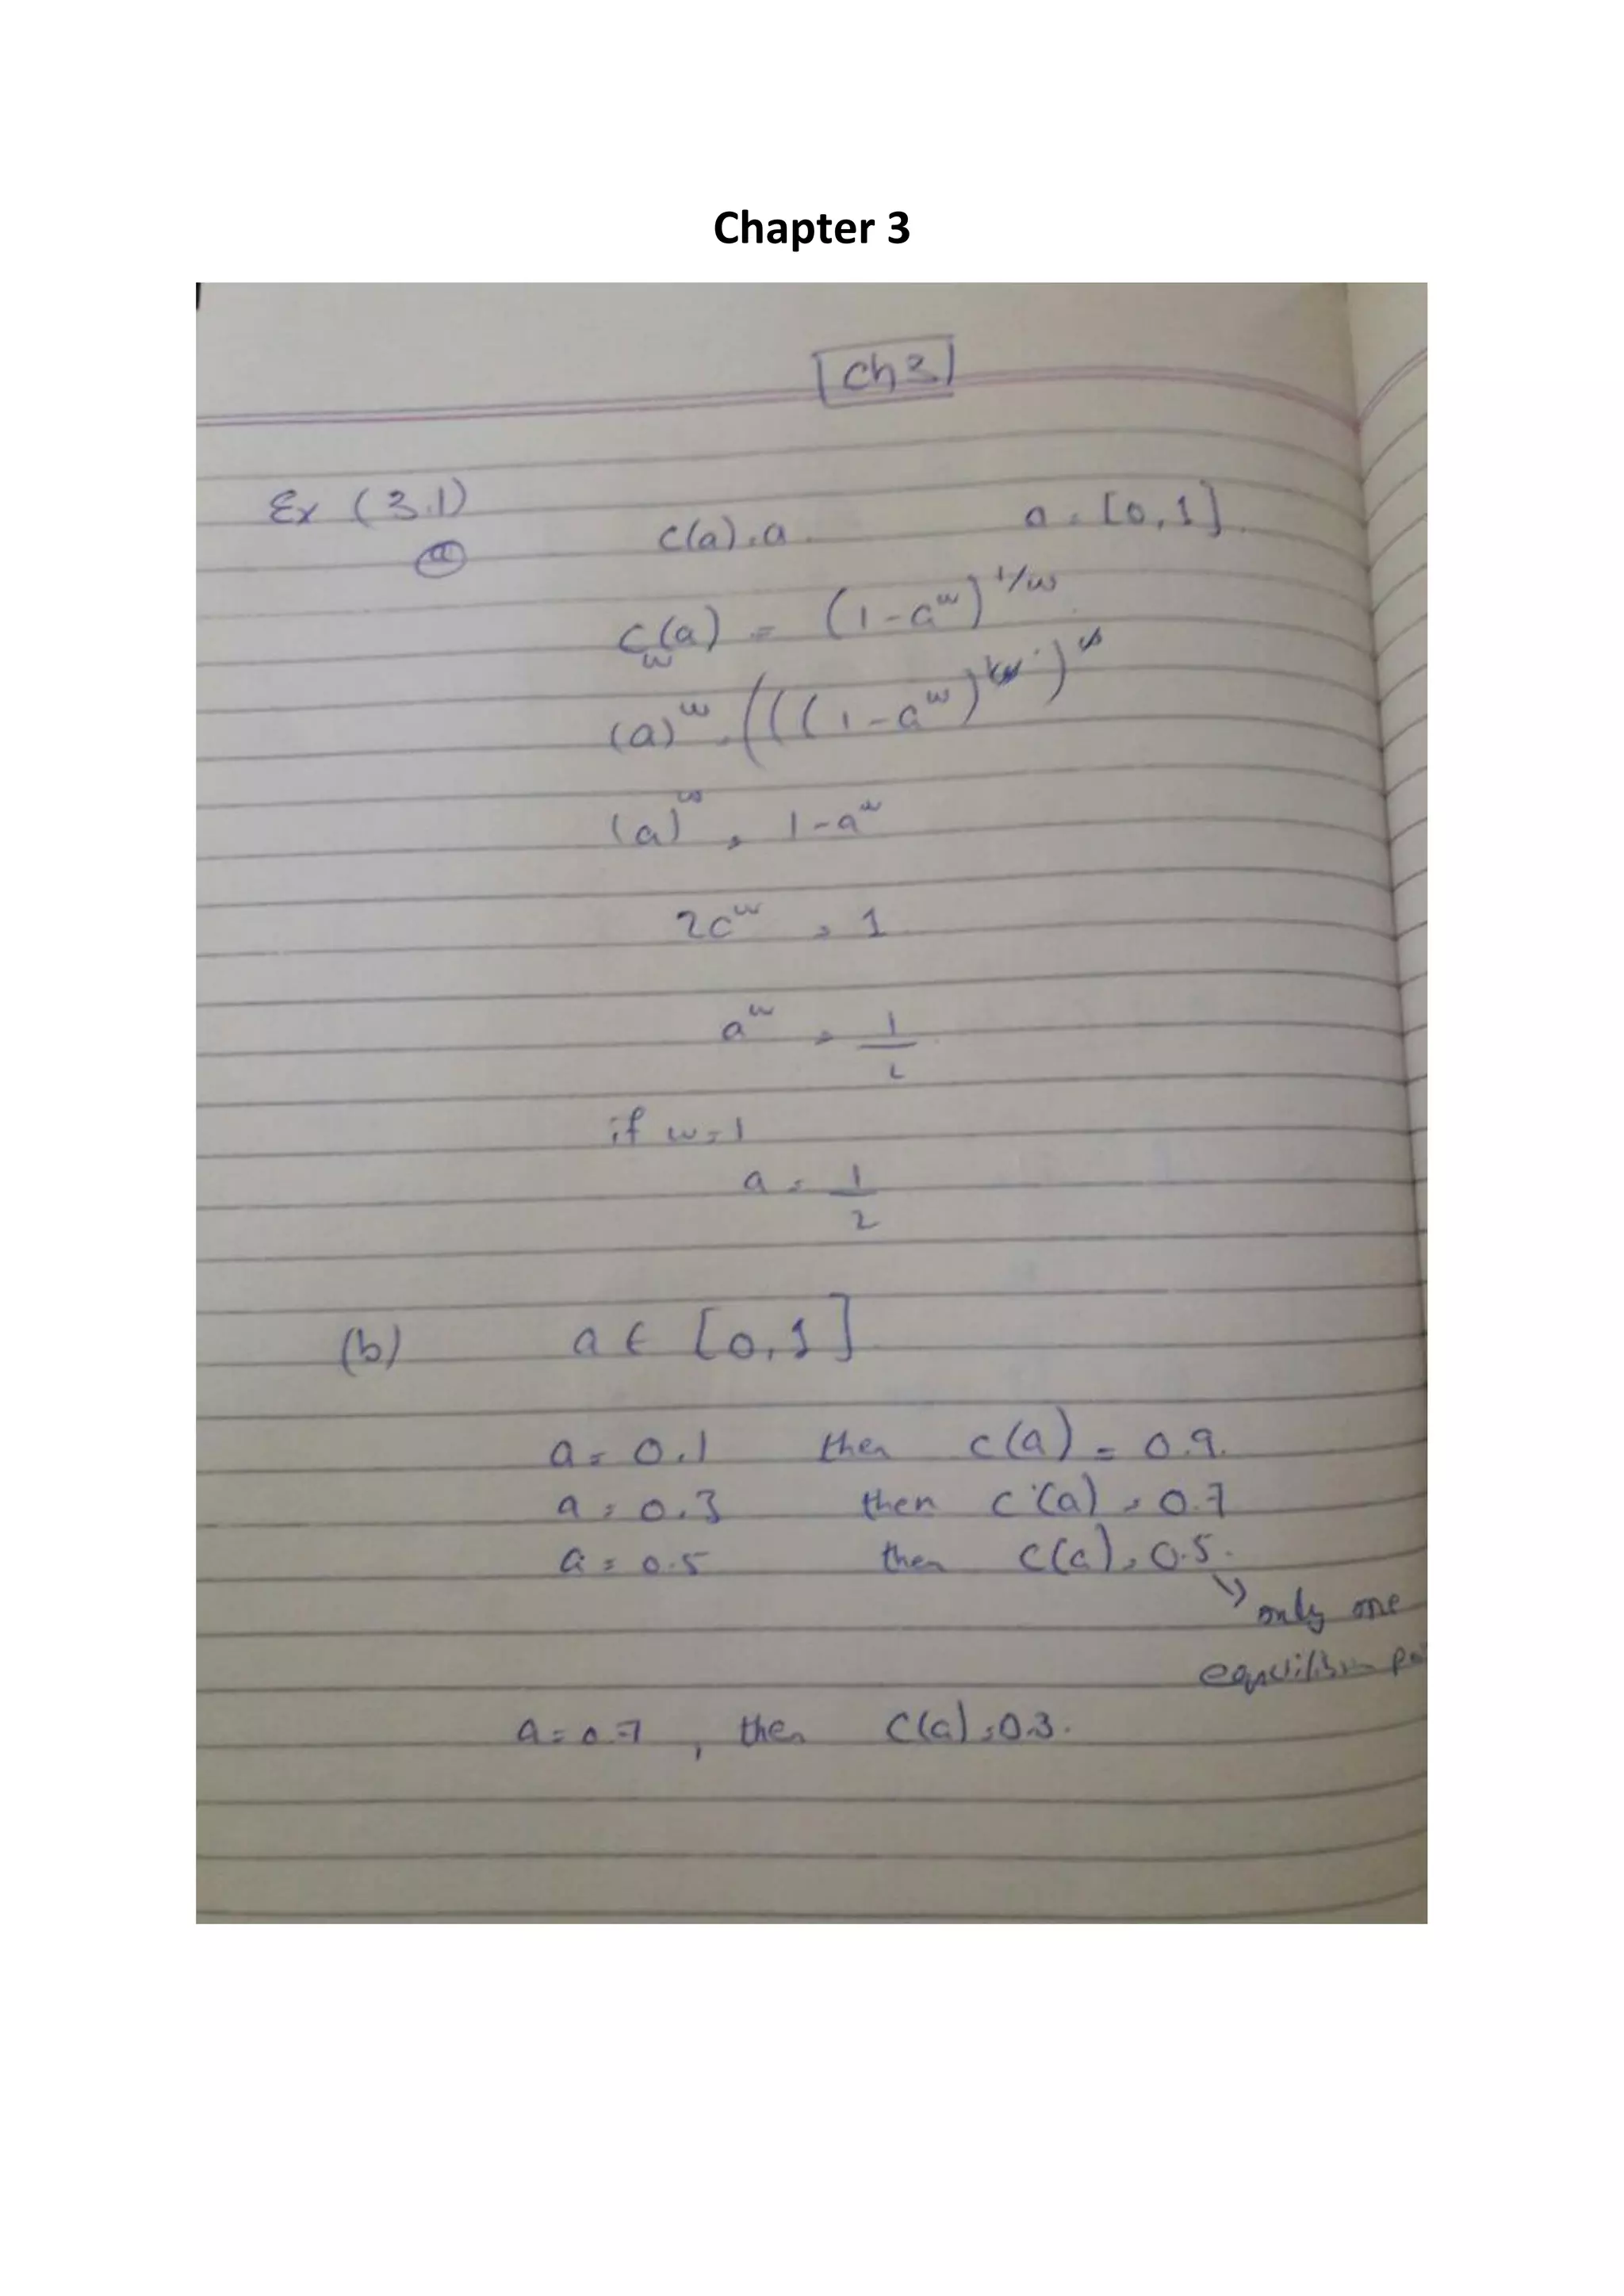 Chapter 3
Ch 3
Ex (3.1)
(a) C(a) = a a = [0,1].
C_w(a) = (1-a^w)^1/w
(a)^w = (((1-a^w)^1/w)^w
(a)^w = 1-a^w
2a^w = 1
a^w = 1/2
if w=1
a = 1/2
(b) a ∈ [0,1]
a = 0.1 then c(a) = 0.9.
a = 0.3 then c(a) = 0.7
a = 0.5 then c(a) = 0.5.
↘ only one
equilibrium
a = 0.7, then C(a) = 0.3.